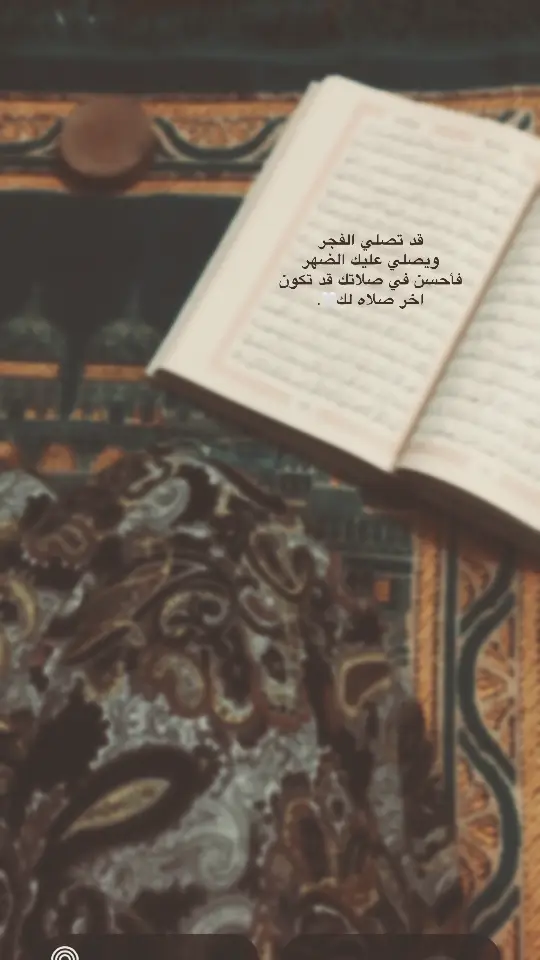 قد تصلي الفجر
ويصلي عليك الضهر
فأحسن في صلاتك قد تكون
اخر صلاه لك🤍.